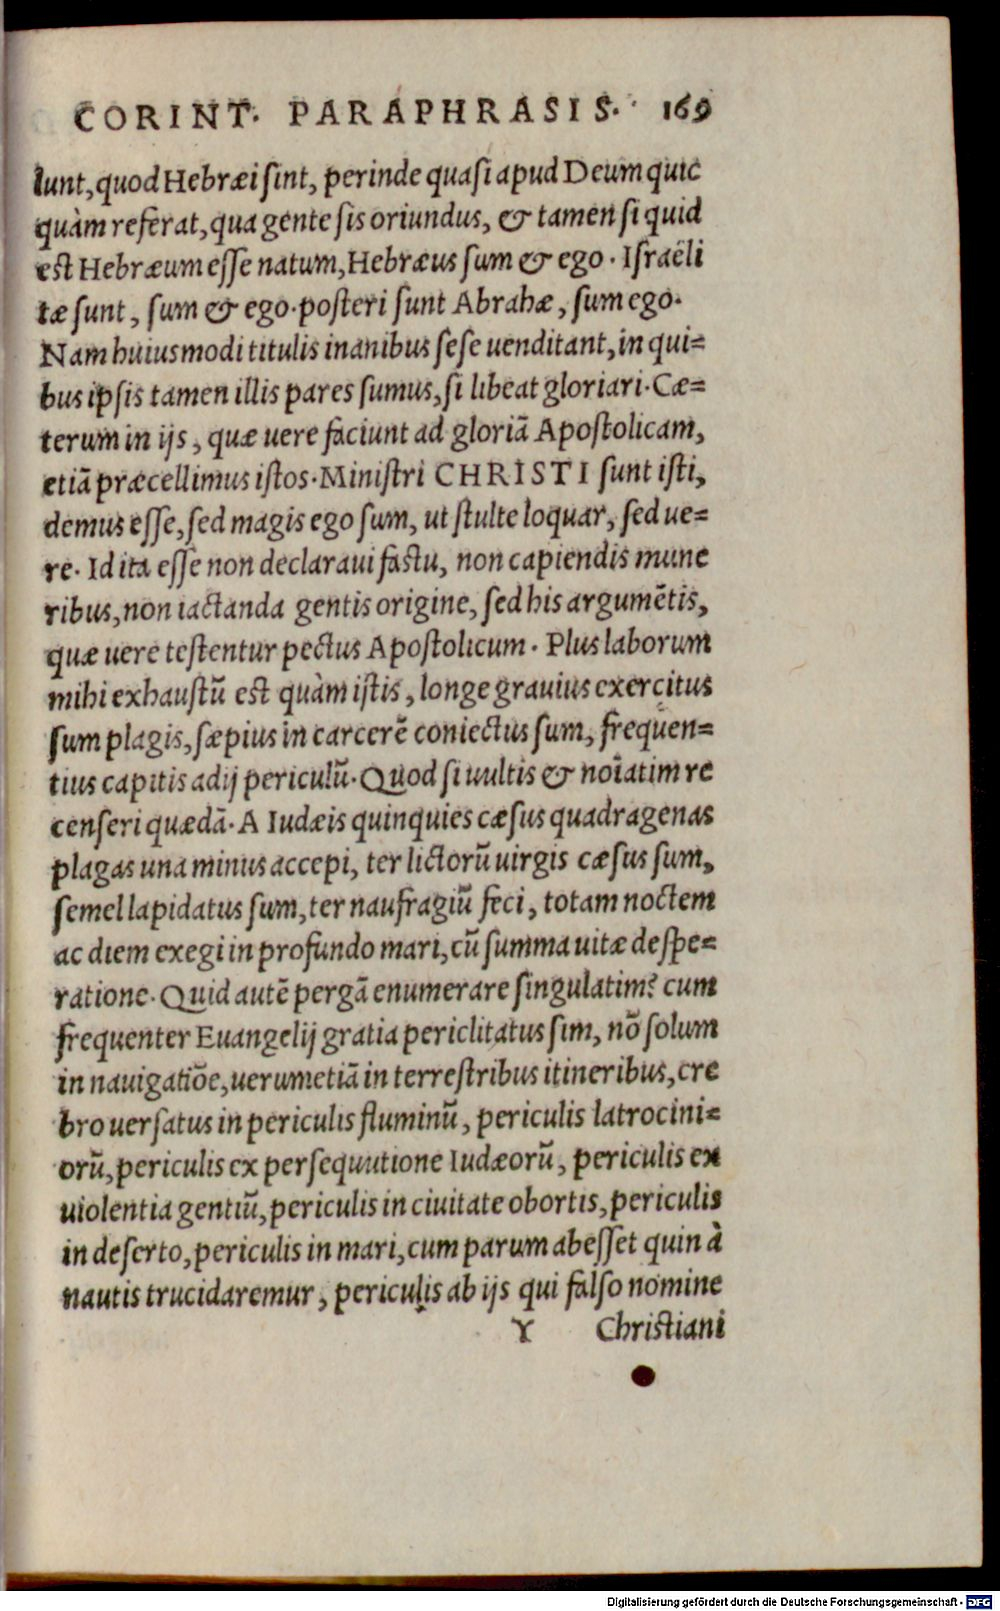 CORINT. PARAPHRASIS. 169
lunt, quod Hebræi sint, perinde quasi apud Deum quic
quàm referat, qua gente sis oriundus, & tamen si quid
est Hebræum esse natum, Hebræus sum & ego. Israëli
tæ sunt, sum & ego. posteri sunt Abrahæ, sum ego.
Nam huiusmodi titulis inanibus sese uenditant, in qui=
bus ipsis tamen illis pares sumus, si libeat gloriari. Cæ=
terum in ijs, quæ uere faciunt ad gloriã Apostolicam,
etiã præcellimus istos. Ministri CHRISTI sunt isti,
demus esse, sed magis ego sum, ut stulte loquar, sed ue=
re. Id ita esse non declaraui fastu, non capiendis mune
ribus, non iactanda gentis origine, sed his argumẽtis,
quæ uere testentur pectus Apostolicum. Plus laborum
mihi exhaustũ est quàm istis, longe grauius exercitus
sum plagis, sæpius in carcerẽ coniectus sum, frequen=
tius capitis adij periculũ. Quod si uultis & noĩatim re
censeri quædã. A Iudæis quinquies cæsus quadragenas
plagas una minus accepi, ter lictorũ uirgis cæsus sum,
semel lapidatus sum, ter naufragiũ feci, totam noctem
ac diem exegi in profundo mari, cũ summa uitæ despe=
ratione. Quid autẽ pergã enumerare singulatim? cum
frequenter Euangelij gratia periclitatus sim, nõ solum
in nauigatiõe, uerumetiã in terrestribus itineribus, cre
bro uersatus in periculis fluminũ, periculis latrocini=
orũ, periculis ex persequutione Iudæorũ, periculis ex
uiolentia gentiũ, periculis in ciuitate obortis, periculis
in deserto, periculis in mari, cum parum abesset quin à
nautis trucidaremur, periculis ab ijs qui falso nomine
Y Christiani
Digitalisierung gefördert durch die Deutsche Forschungsgemeinschaft - DFG